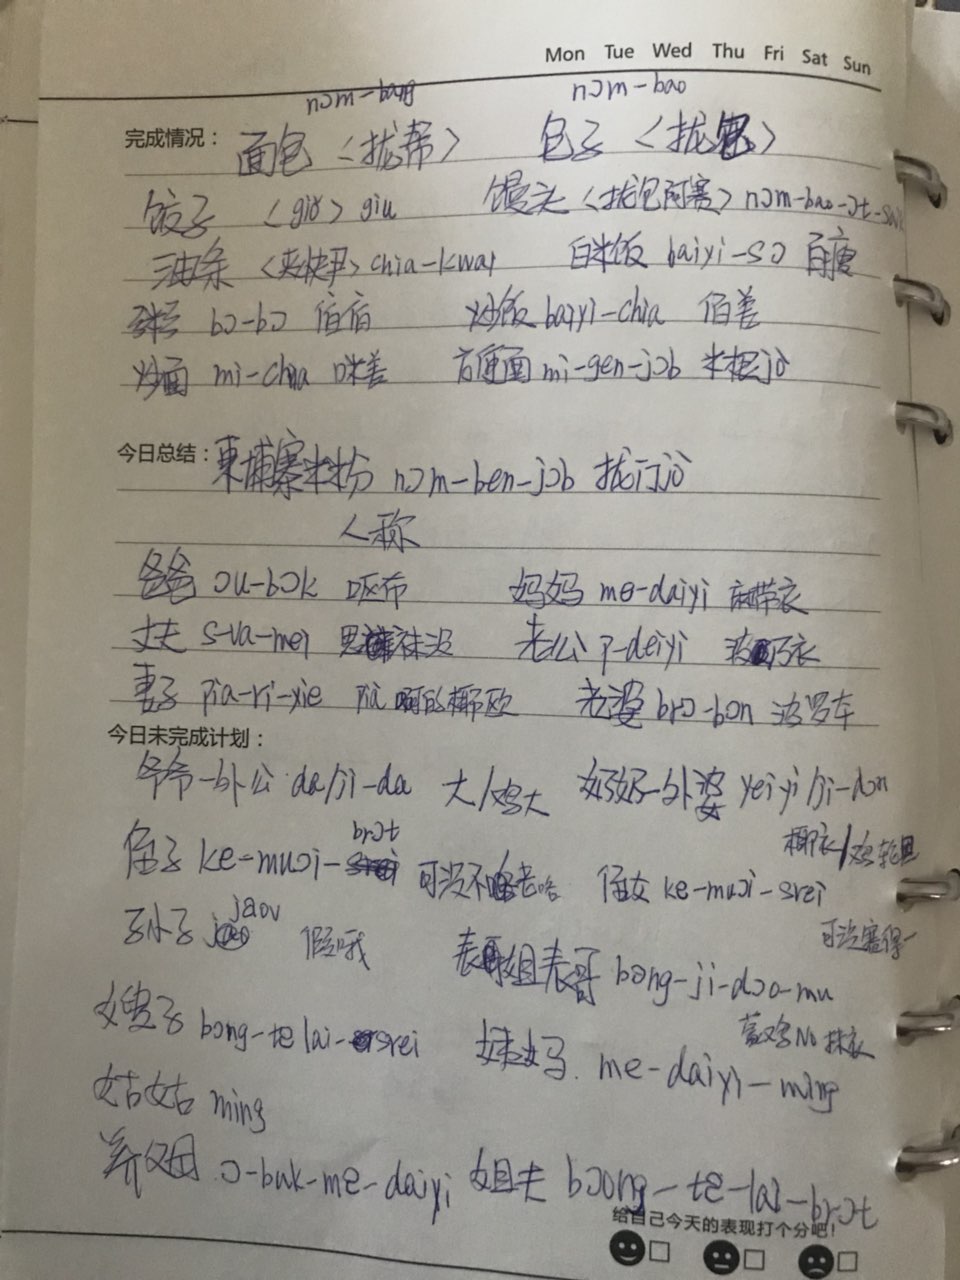 Mon Tue Wed Thu Fri Sat Sun
nɔm-bang nɔm-bao
完成情况: 面包〈拢帮〉 包子〈拢包〉
饺子 〈giǒ〉giu 馒头〈拢包阿赛〉nɔm-bao-ɔt-
油条〈夹快尹〉chia-kwai 白米饭 baiyi-sɔ 百嗖
粥 bɔ-bɔ 炒饭 baiyi-chia 佰善
炒面 mi-chia 咪善 方便面 mi-gen-jɔb 米根jò
今日总结: 柬埔寨米粉 nɔm-ben-jɔb
人称
爸爸 ɔu-bɔk 呕布 妈妈 me-daiyi 麻带衣
丈夫 s-va-mei 老公 p-deiyi
妻子 pia-ri-yie 老婆 brɔ-bon 波罗本
今日未完成计划:
爷爷-外公 da/ji-da 大/鸡大 奶奶-外婆 yeiyi/ji-don
椰衣/鸡轮
侄子 ke-muɔi-brɔt 侄女 ke-muɔi-srei
孙子 jaov 假哦 表姐表哥 bɔng-ji-dɔo-mu
嫂子 bɔng-te lai-srei 姨妈 me-daiyi-ming
姑姑 ming
养父母 ɔ-buk-me-daiyi 姐夫 bɔong-te-lai-brɔt
给自己今天的表现打个分吧!